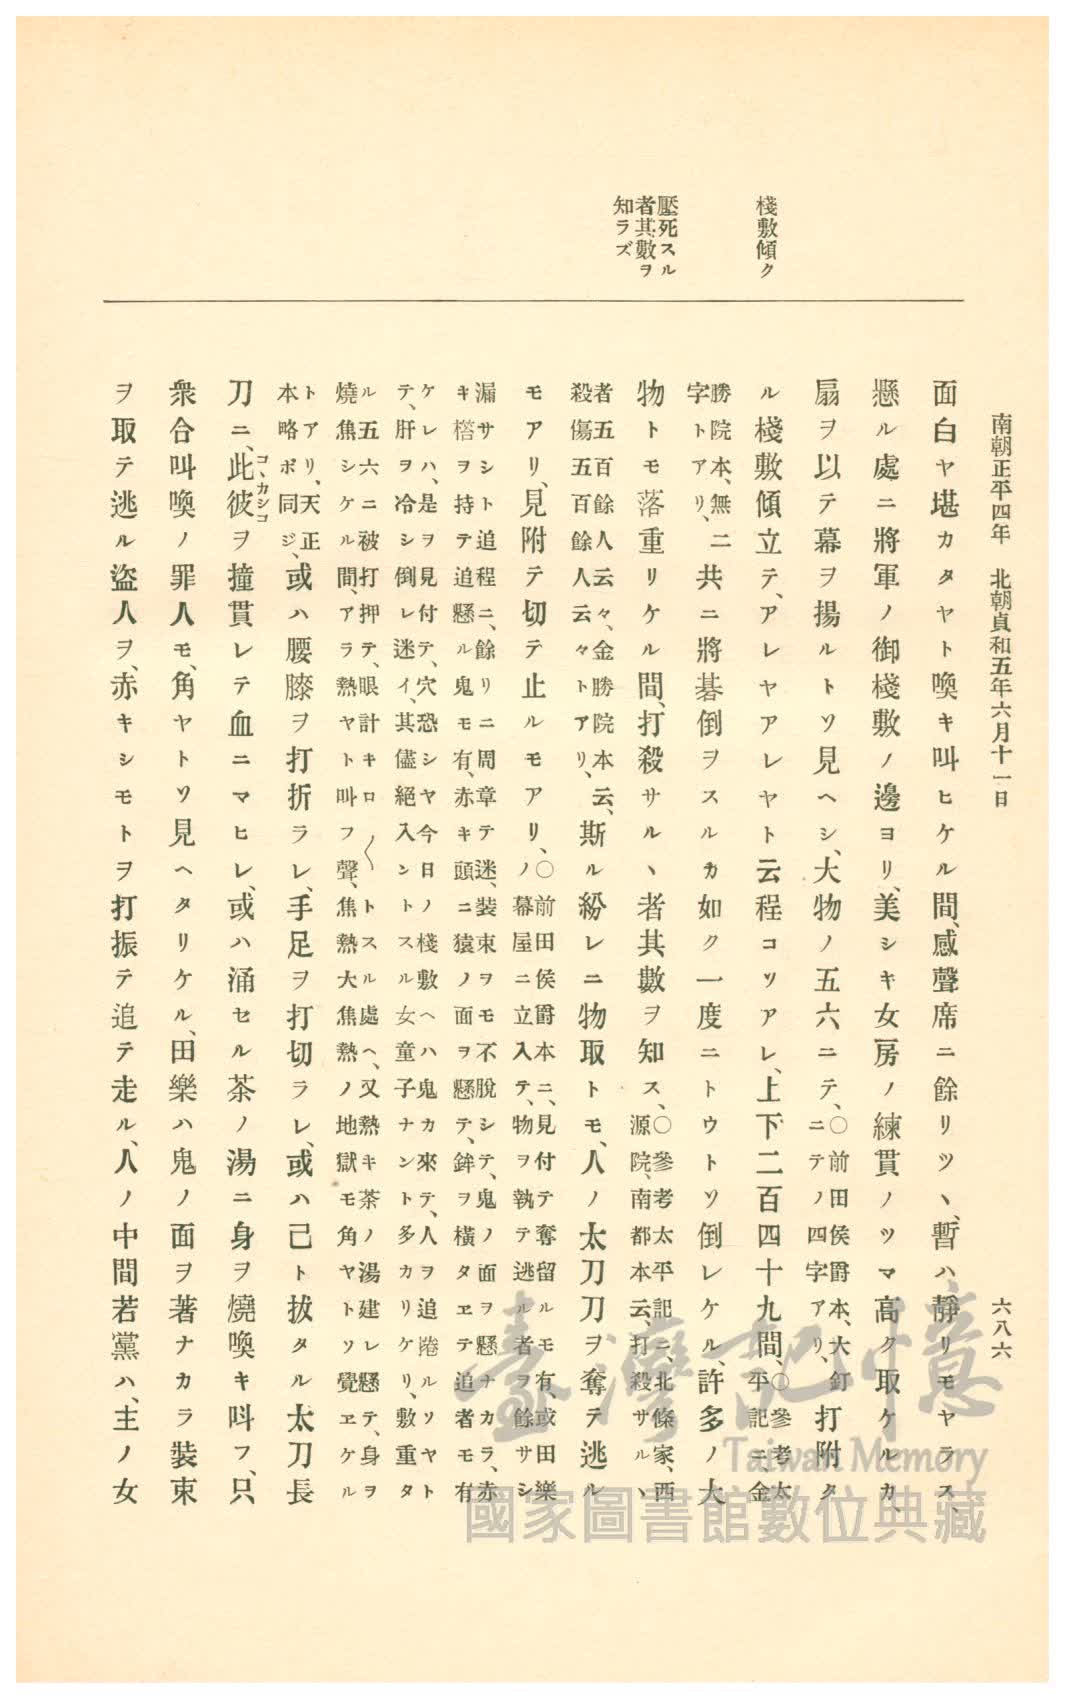 南朝正平四年　北朝貞和五年六月十一日
六八六
棧敷傾ク
壓死スル
者其數ヲ
知ラズ
面白ヤ堪カタヤト喚キ叫ヒケル間、感聲席ニ餘リツヽ、暫ハ靜リモヤラス、
懸ル處ニ將軍ノ御棧敷ノ邊ヨリ、美シキ女房ノ練貫ノツマ高ク取ケルカ、
扇ヲ以テ幕ヲ揚ルトソ見ヘシ、大物ノ五六ニテ、
〇前田侯爵本、大釘
ニテノ四字アリ、
打附タ
ル棧敷傾立テ、アレヤアレヤト云程コソアレ、上下二百四十九間、
〇參考太
平記ニ、金
勝院本、無
字トアリ、
ニ共ニ將碁倒ヲスルカ如ク一度ニトウトソ倒レケル、許多ノ大
物トモ落重リケル間、打殺サルヽ者其數ヲ知ス、
〇參考太平記ニ、北條家、西
源院、南都本云、打殺サルヽ
者五百餘人云々、金勝院本云、
殺傷五百餘人云々トアリ、
斯ル紛レニ物取トモ、人ノ太刀刀ヲ奪テ逃ル
モアリ、見附テ切テ止ルモアリ、
〇前田侯爵本ニ、見付テ奪留ルモ有、或田樂
ノ幕屋ニ立入テ、物ヲ執テ逃ル者ヲ餘サシ
漏サシト追程ニ、餘リニ周章テ迷、裝束ヲモ不脱シテ、鬼ノ面ヲ懸ナカラ、赤
キ撘ヲ持テ追懸ル鬼モ有、赤キ頭ニ猿ノ面ヲ懸テ、鉾ヲ橫タヱテ追者モ有
ケレハ、是ヲ見付テ、穴恐シヤ今日ノ棧敷ヘハ鬼カ來テ、人ヲ追捲ルソヤト
テ、肝ヲ冷シ倒レ迷イ、其儘絕入ントスル女童子ナント多カリケリ、敷重タ
ル五六ニ被打押テ、眼計キロ〱トスル處ヘ、又熱キ茶ノ湯建レ懸テ、身ヲ
燒焦シケル間、アラ熱ヤト叫フ聲、焦熱大焦熱ノ地獄モ角ヤトソ覺ヱケル
トアリ、天正
本略ボ同ジ、
或ハ腰膝ヲ打折ラレ、手足ヲ打切ラレ、或ハ己ト拔タル太刀長
刀ニ、此彼ヲ撞貫レテ血ニマヒレ、或ハ涌セル茶ノ湯ニ身ヲ燒喚キ叫フ、只
コヽカシコ
衆合叫喚ノ罪人モ、角ヤトソ見ヘタリケル、田樂ハ鬼ノ面ヲ著ナカラ裝束
ヲ取テ逃ル盜人ヲ、赤キシモトヲ打振テ追テ走ル、人ノ中間若黨ハ、主ノ女
臺灣記憶
Taiwan Memory
國家圖書館數位典藏